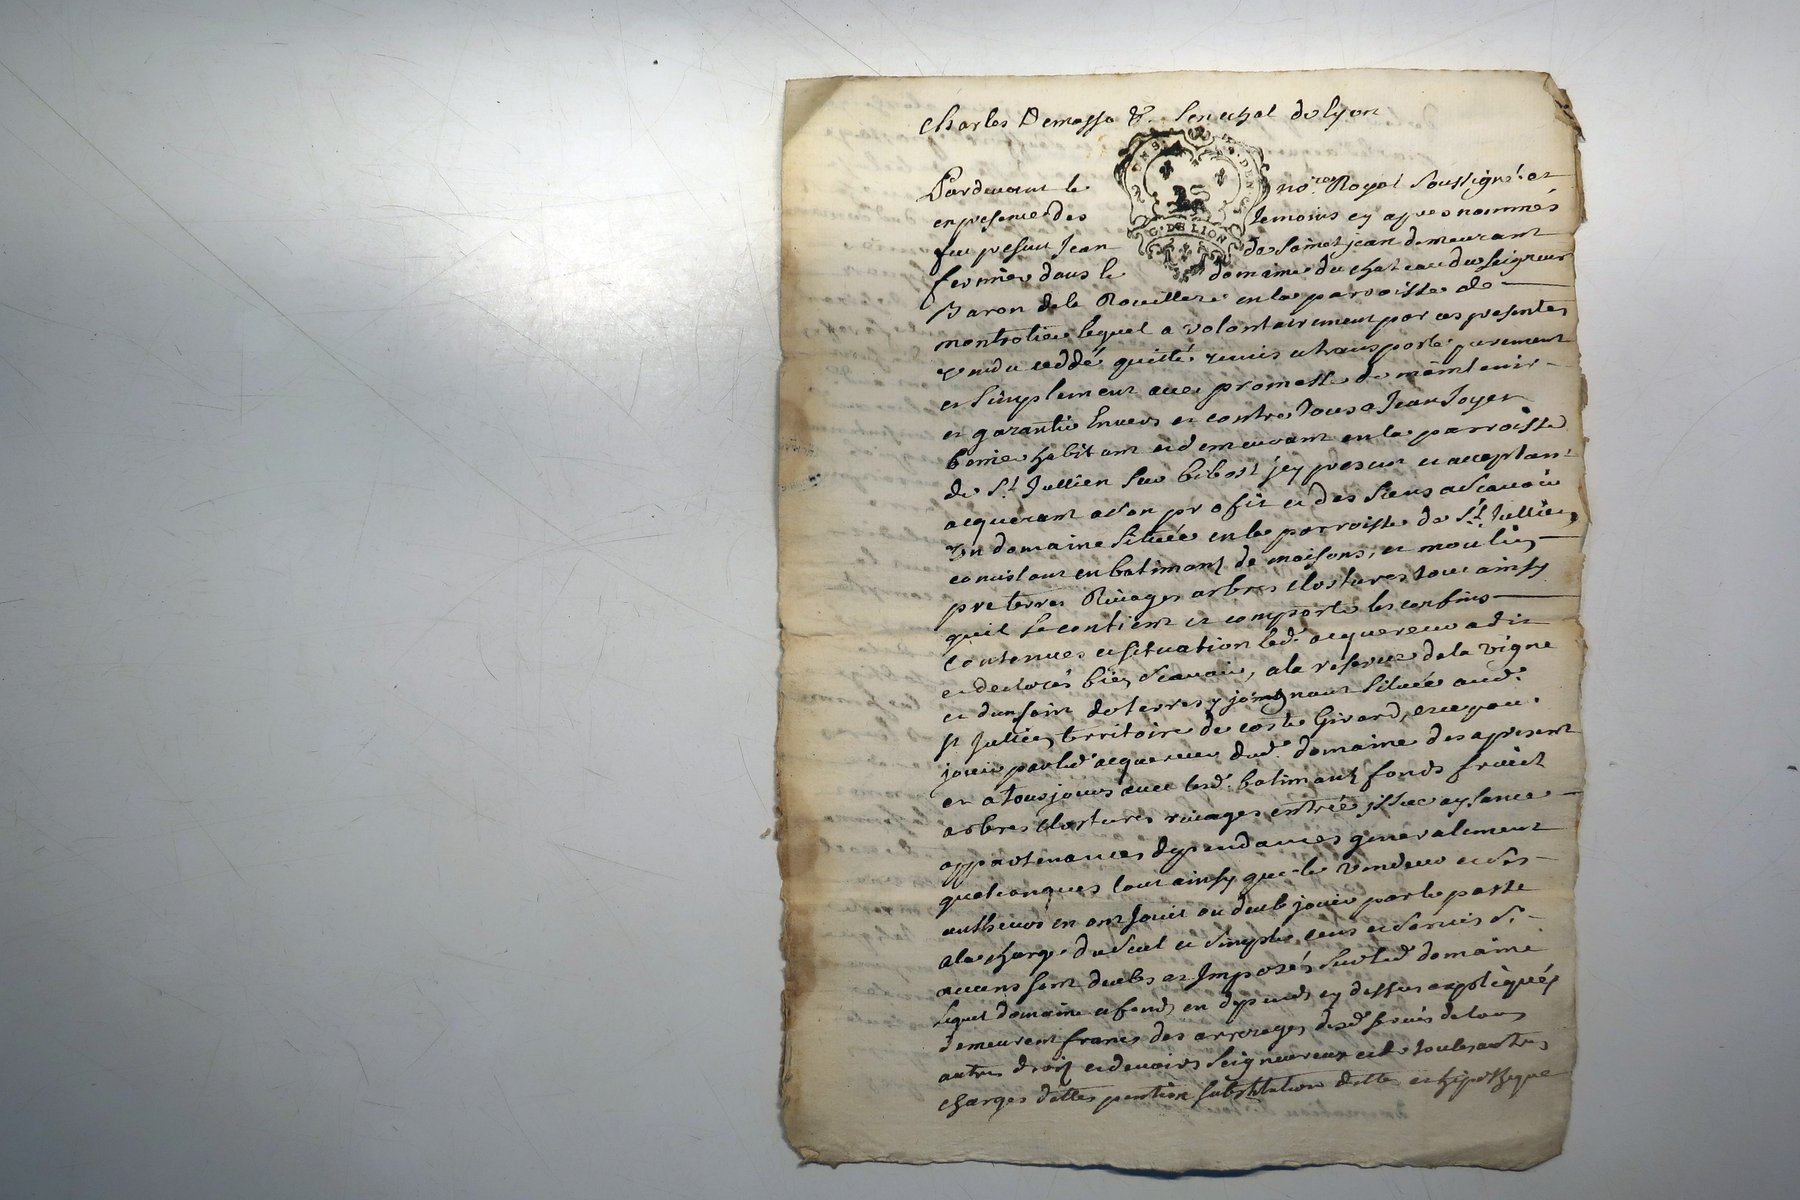 Charles Demasso &. Senechal de lyon
G. DE LION
Pardevant le no.re Royal soussigné et
en presence des temoins cy apres nommés
fut present Jean de Sainct jean demeurant
fermier dans le domaine du chateau du seigneur
Baron de la Rouillere en la parroisse de
montrotier lequel a volontairement par ces presentes
vendu ceddé quitté remis et transporté purement
et simplement avec promesse de maintenir
et garantir Envers et contre tous a Jean Joyer
habitant et demeurant en la parroisse
de St. Jullien sur bibost jcy present et acceptant
acquerant a son profit et des siens a scavoir
Un domaine Situéé en la parroisse de St. Jullien
consistant en batimant de maisons, et moulin
pre terres Rivages arbres clostures tout ainsy
quil se contient et comporte les confins
contenues et situation led. acquereur a dit
et declarés bien scavoir, a la reserve de la vigne
et dun terres y joingnant Située aud.
St Jullien territoire de coste Girard, pour
jouir par led acquereur dud. domaine des apresent
et a tousjours avec lesd. batimant fonds fruict
arbres clostures rivages entrée jssue aysance
appartenances dependances generalement
quelconques tout ainsy que le Vendeur et ses
autheurs en ont Jouit ou deub jouir par le passé
a la charge du seul et simple cens et servis si
aucuns sont deubs et Imposés sur led domaine
Lequel domaine et fonds en dependt cy dessus expliqués
demeurent francs des arrerages desd servis de tous
autres droits et devoirs Seigneureux et de toutes autres
charges dettes pention substitution dette et hipotheque